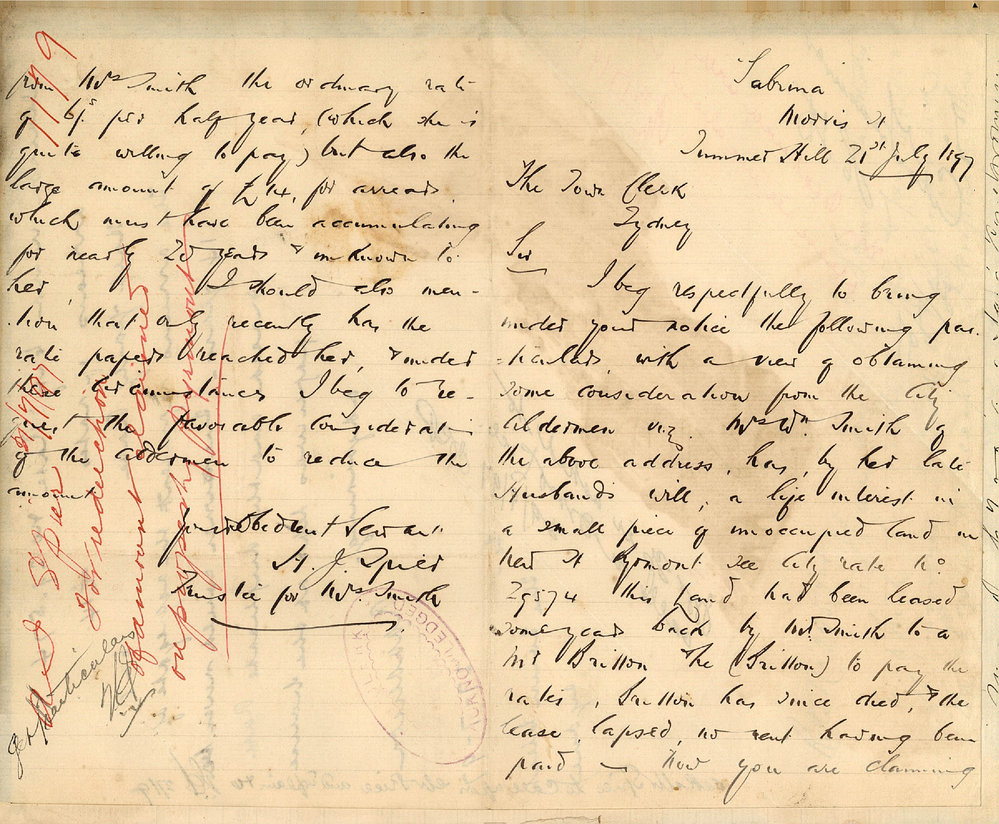 Sabrina
Morris St
Summer Hill 21st July 1897
The Town Clerk
Sydney
Sir
I beg respectfully to bring
under your notice the following par
-ticulars, with a view of obtaining
some consideration from the City
Aldermen viz. Mrs Wm Smith of
the above address, has, by her late
Husbands will, a life interest in
a small piece of unoccupied land in
New St Pyrmont see City rate No
29574 this land had been leased
some years back by Mr Smith to a
Mr Britton he (Britton) to pay the
rates, Britton has since died, & the
lease lapsed, no rent having been
paid — Now you are claiming
from Mrs Smith the ordinary rate
of 6/5 per half year, (which she is
quite willing to pay) but also the
large amount of £14, for arrears
which must have been accumulating
for nearly 20 years & unknown to
her, I should also men-
-tion that only recently has the
rate papers reached her, & under
these circumstances I beg to re-
quest the favorable consideration
of the aldermen to reduce the
amount
Your Obedient Servant
H. J. Spier
Trustee for Mrs Smith
97/1779
H J Spier
21/7/97
For reduction
of amount claimed
on property Pyrmont
Get particulars
ACKNOWLEDGED